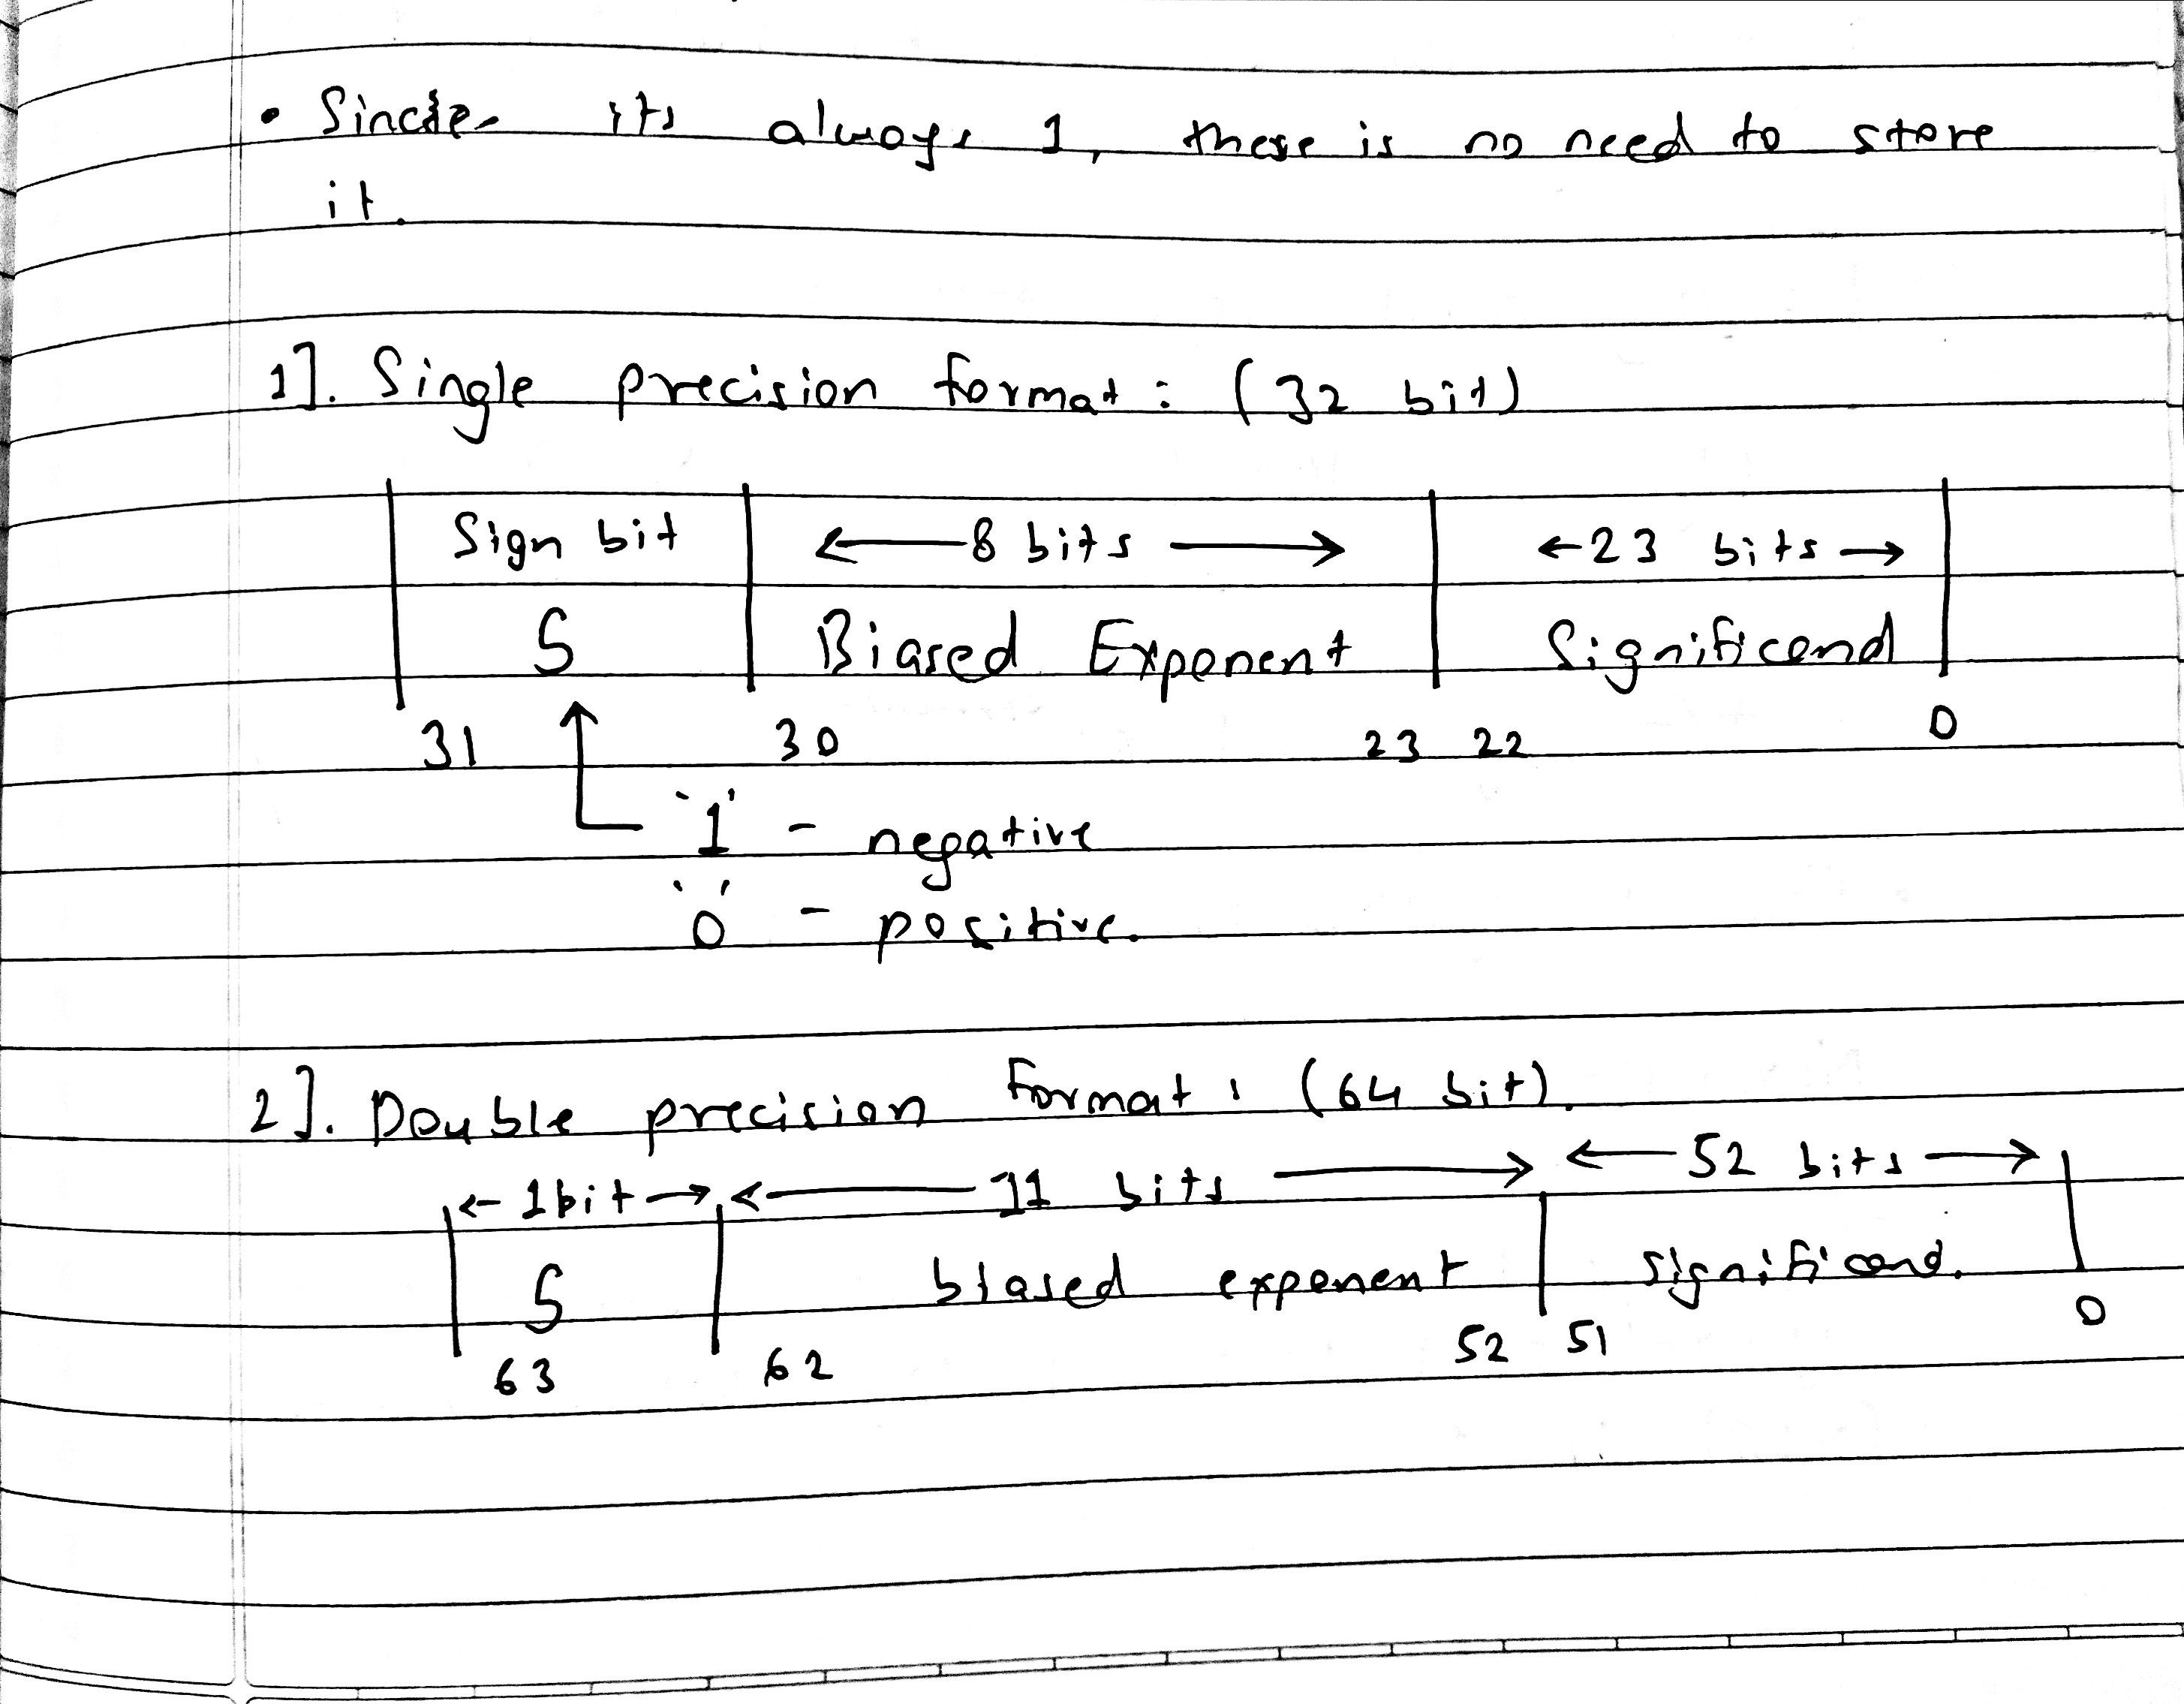 • Since its always 1, there is no need to store
it.
1]. Single precision format : (32 bit)
Sign bit ← 8 bits → ← 23 bits →
S Biased Exponent Significand
31 30 23 22 0
'1' - negative
'0' - positive.
2]. Double precision format : (64 bit).
← 1bit → ← 11 bits → ← 52 bits →
S biased exponent significand.
63 62 52 51 0